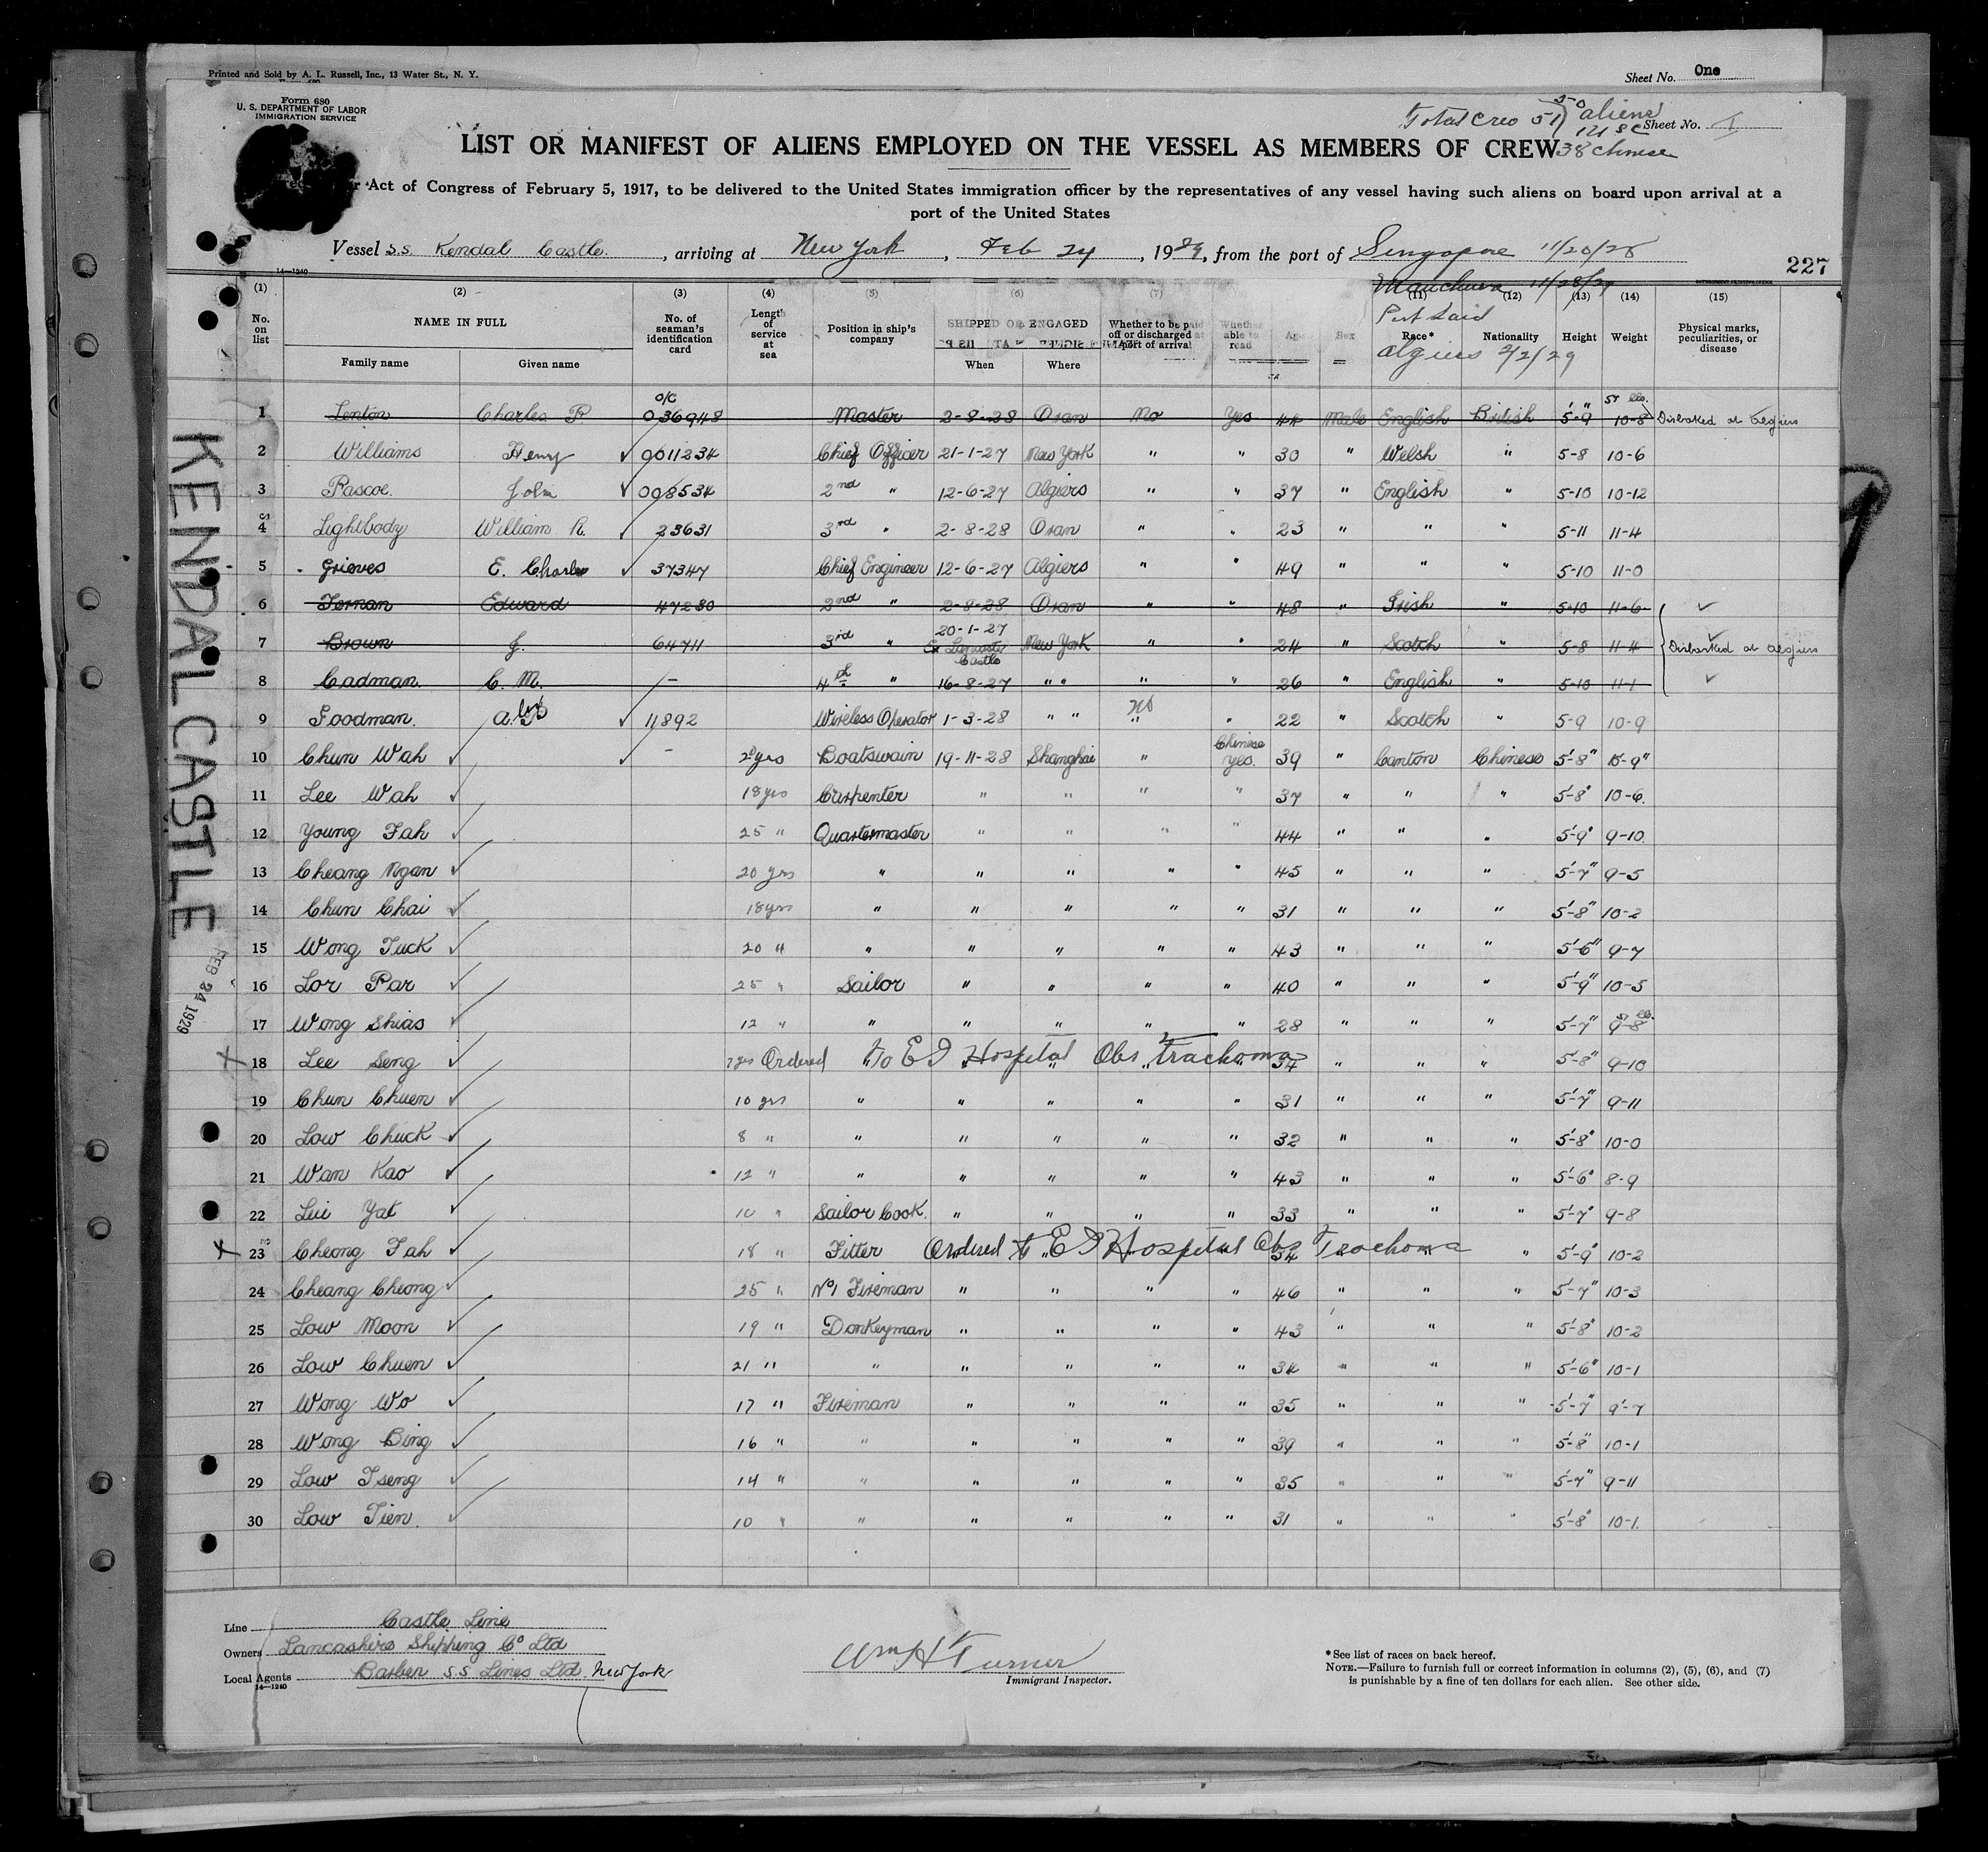 Printed and Sold by A. L. Russell, Inc., 13 Water St., N. Y.
Sheet No. One
Form 680
U. S. DEPARTMENT OF LABOR
IMMIGRATION SERVICE
Total Crew 51 50 aliens
1 U S C
38 Chinese
Sheet No. I
LIST OR MANIFEST OF ALIENS EMPLOYED ON THE VESSEL AS MEMBERS OF CREW
Act of Congress of February 5, 1917, to be delivered to the United States immigration officer by the representatives of any vessel having such aliens on board upon arrival at a
port of the United States
Vessel S.S. Kendal Castle. , arriving at New York , Feb 24 , 1929, from the port of Singapore 11/20/28
14—1240
227
11/28/28
Port Said
Algiers 2/2/29
(1) (2) (3) (4) (5) (6) (7) (11) (12) (13) (14) (15)
No. on list
NAME IN FULL
Family name
Given name
No. of seaman's identification card
Length of service at sea
Position in ship's company
SHIPPED OR ENGAGED
When
Where
Whether to be paid off or discharged at port of arrival
Whether able to read
Age
Sex
Race*
Nationality
Height
Weight
Physical marks, peculiarities, or disease
1 Lenton Charles R o/c 036948 Master 2-8-28 Oran No Yes 44 Male English British 5'-9" 10-8 st lbs. Disbarked at Algiers
2 Williams Henry ✓ 0011234 Chief Officer 21-1-27 New York " " 30 " Welsh " 5-8 10-6
3 Pascoe. John ✓ 008534 2nd " 12-6-27 Algiers " " 37 " English " 5-10 10-12
4 Lightbody William R. ✓ 23631 3rd " 2-8-28 Oran " " 23 " " " 5-11 11-4
5 Grieves E. Charles ✓ 37347 Chief Engineer 12-6-27 Algiers " " 49 " " " 5-10 11-0
6 Ternan Edward 47280 2nd " 2-8-28 Oran " " 48 " Irish " 5-10 11-6 ✓
7 Brown J. 64711 3rd " 20-1-27 Ex Lancaster Castle New York " " 24 " Scotch " 5-8 11-4 Disbarked at Algiers
8 Cadman. C. M. - 4th " 16-8-27 " " " " 26 " English " 5-10 11-1 ✓
9 Foodman. ✓ 11892 Wireless Operator 1-3-28 " " No " 22 " Scotch " 5-9 10-9
10 Chun Wah ✓ ✓ - yrs Boatswain 19-11-28 Shanghai " Chinese yes. 39 " Canton Chinese 5'-8" -9"
11 Lee Wah ✓ 18 yrs Carpenter " " " " 37 " " " 5'-8" 10-6.
12 Young Fah ✓ 25 " Quartermaster " " " " 44 " " " 5'-9" 9-10.
13 Cheang Ngan ✓ 20 yrs " " " " " 45 " " " 5'-7" 9-5
14 Chun Chai ✓ 18 yrs " " " " " 31 " " " 5'-8" 10-2
15 Wong Tuck ✓ 20 " " " " " " 43 " " " 5'-6" 9-7
16 Lor Par ✓ 25 " Sailor " " " " 40 " " " 5'-9" 10-5
17 Wong Shias ✓ 12 " " " " " " 28 " " " 5'-7" 9-8 st lb.
x 18 Lee Seng ✓ 7 yrs Ordered to E I Hospital Obs Trachoma 34 " " " 5'-8" 9-10
19 Chun Chuen ✓ 10 yrs " " " " " 31 " " " 5'-7" 9-11
20 Low Chuck ✓ 8 " " " " " " 32 " " " 5'-8" 10-0
21 Wan Kao ✓ 12 " " " " " " 43 " " " 5'-6" 8-9
22 Lui Yat ✓ 10 " Sailor Cook. " " " " 33 " " " 5'-7" 9-8
x 23 Cheong Fah ✓ 18 " Fitter Ordered to E I Hospital Obs Trachoma 34 " 5'-9" 10-2
24 Cheang Cheong ✓ 25 " No 1 Fireman " " " " 46 " " " 5'-7" 10-3
25 Low Moon ✓ 19 " Donkeyman " " " " 43 " " " 5'-8" 10-2
26 Low Chuen ✓ 21 " " " " " " 34 " " " 5'-6" 10-1
27 Wong Wo ✓ 17 " Fireman " " " " 35 " " " 5'-7" 9-7
28 Wong Bing ✓ 16 " " " " " " 39 " " " 5'-8" 10-1
29 Low Tseng ✓ 14 " " " " " " 35 " " " 5'-7" 9-11
30 Low Tien. ✓ 10 " " " " " " 31 " " " 5'-8" 10-1.
KENDAL CASTLE
FEB 24 1929
Line Castle Line
Owners Lancashire Shipping Co Ltd
Local Agents Barber S S Lines Ltd. New York
14—1240
Wm H Turner
Immigrant Inspector.
*See list of races on back hereof.
NOTE.—Failure to furnish full or correct information in columns (2), (5), (6), and (7)
is punishable by a fine of ten dollars for each alien. See other side.